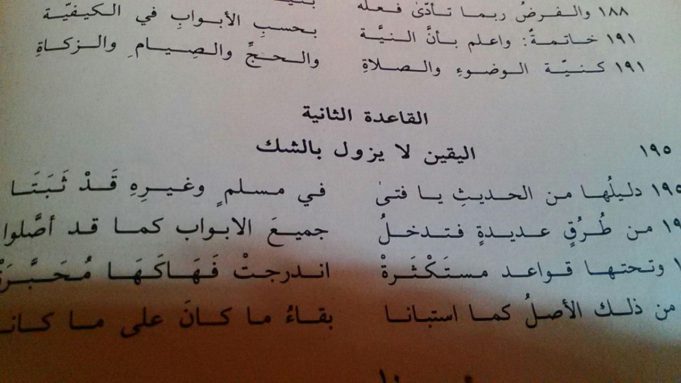 ١٨٨ والفرضُ ربما تأدّى فعله
١٩١ خاتمةٌ: واعلم بأنَّ النيَّة بحسبِ الأبوابِ في الكيفيّة
١٩١ كنيّة الوضوءِ والصلاةِ والحجِّ والصِيامِ والزكاةِ
القاعدة الثانية
١٩٥ اليقين لا يزول بالشك
١٩٥ دليلُها من الحديثِ يا فتىٰ في مسلمٍ وغيرِهِ قَدْ ثَبَتَا
من طُرُقٍ عديدةٍ فتدخلُ جميعَ الابواب كما قد أصَّلوا
وتحتها قواعد مستَكْثَرةْ اندرجتْ فَهَاكَهَا مُحَبَّرَةْ
من ذلك الأصلُ كما استبانا بقاءُ ما كانَ على ما كانا